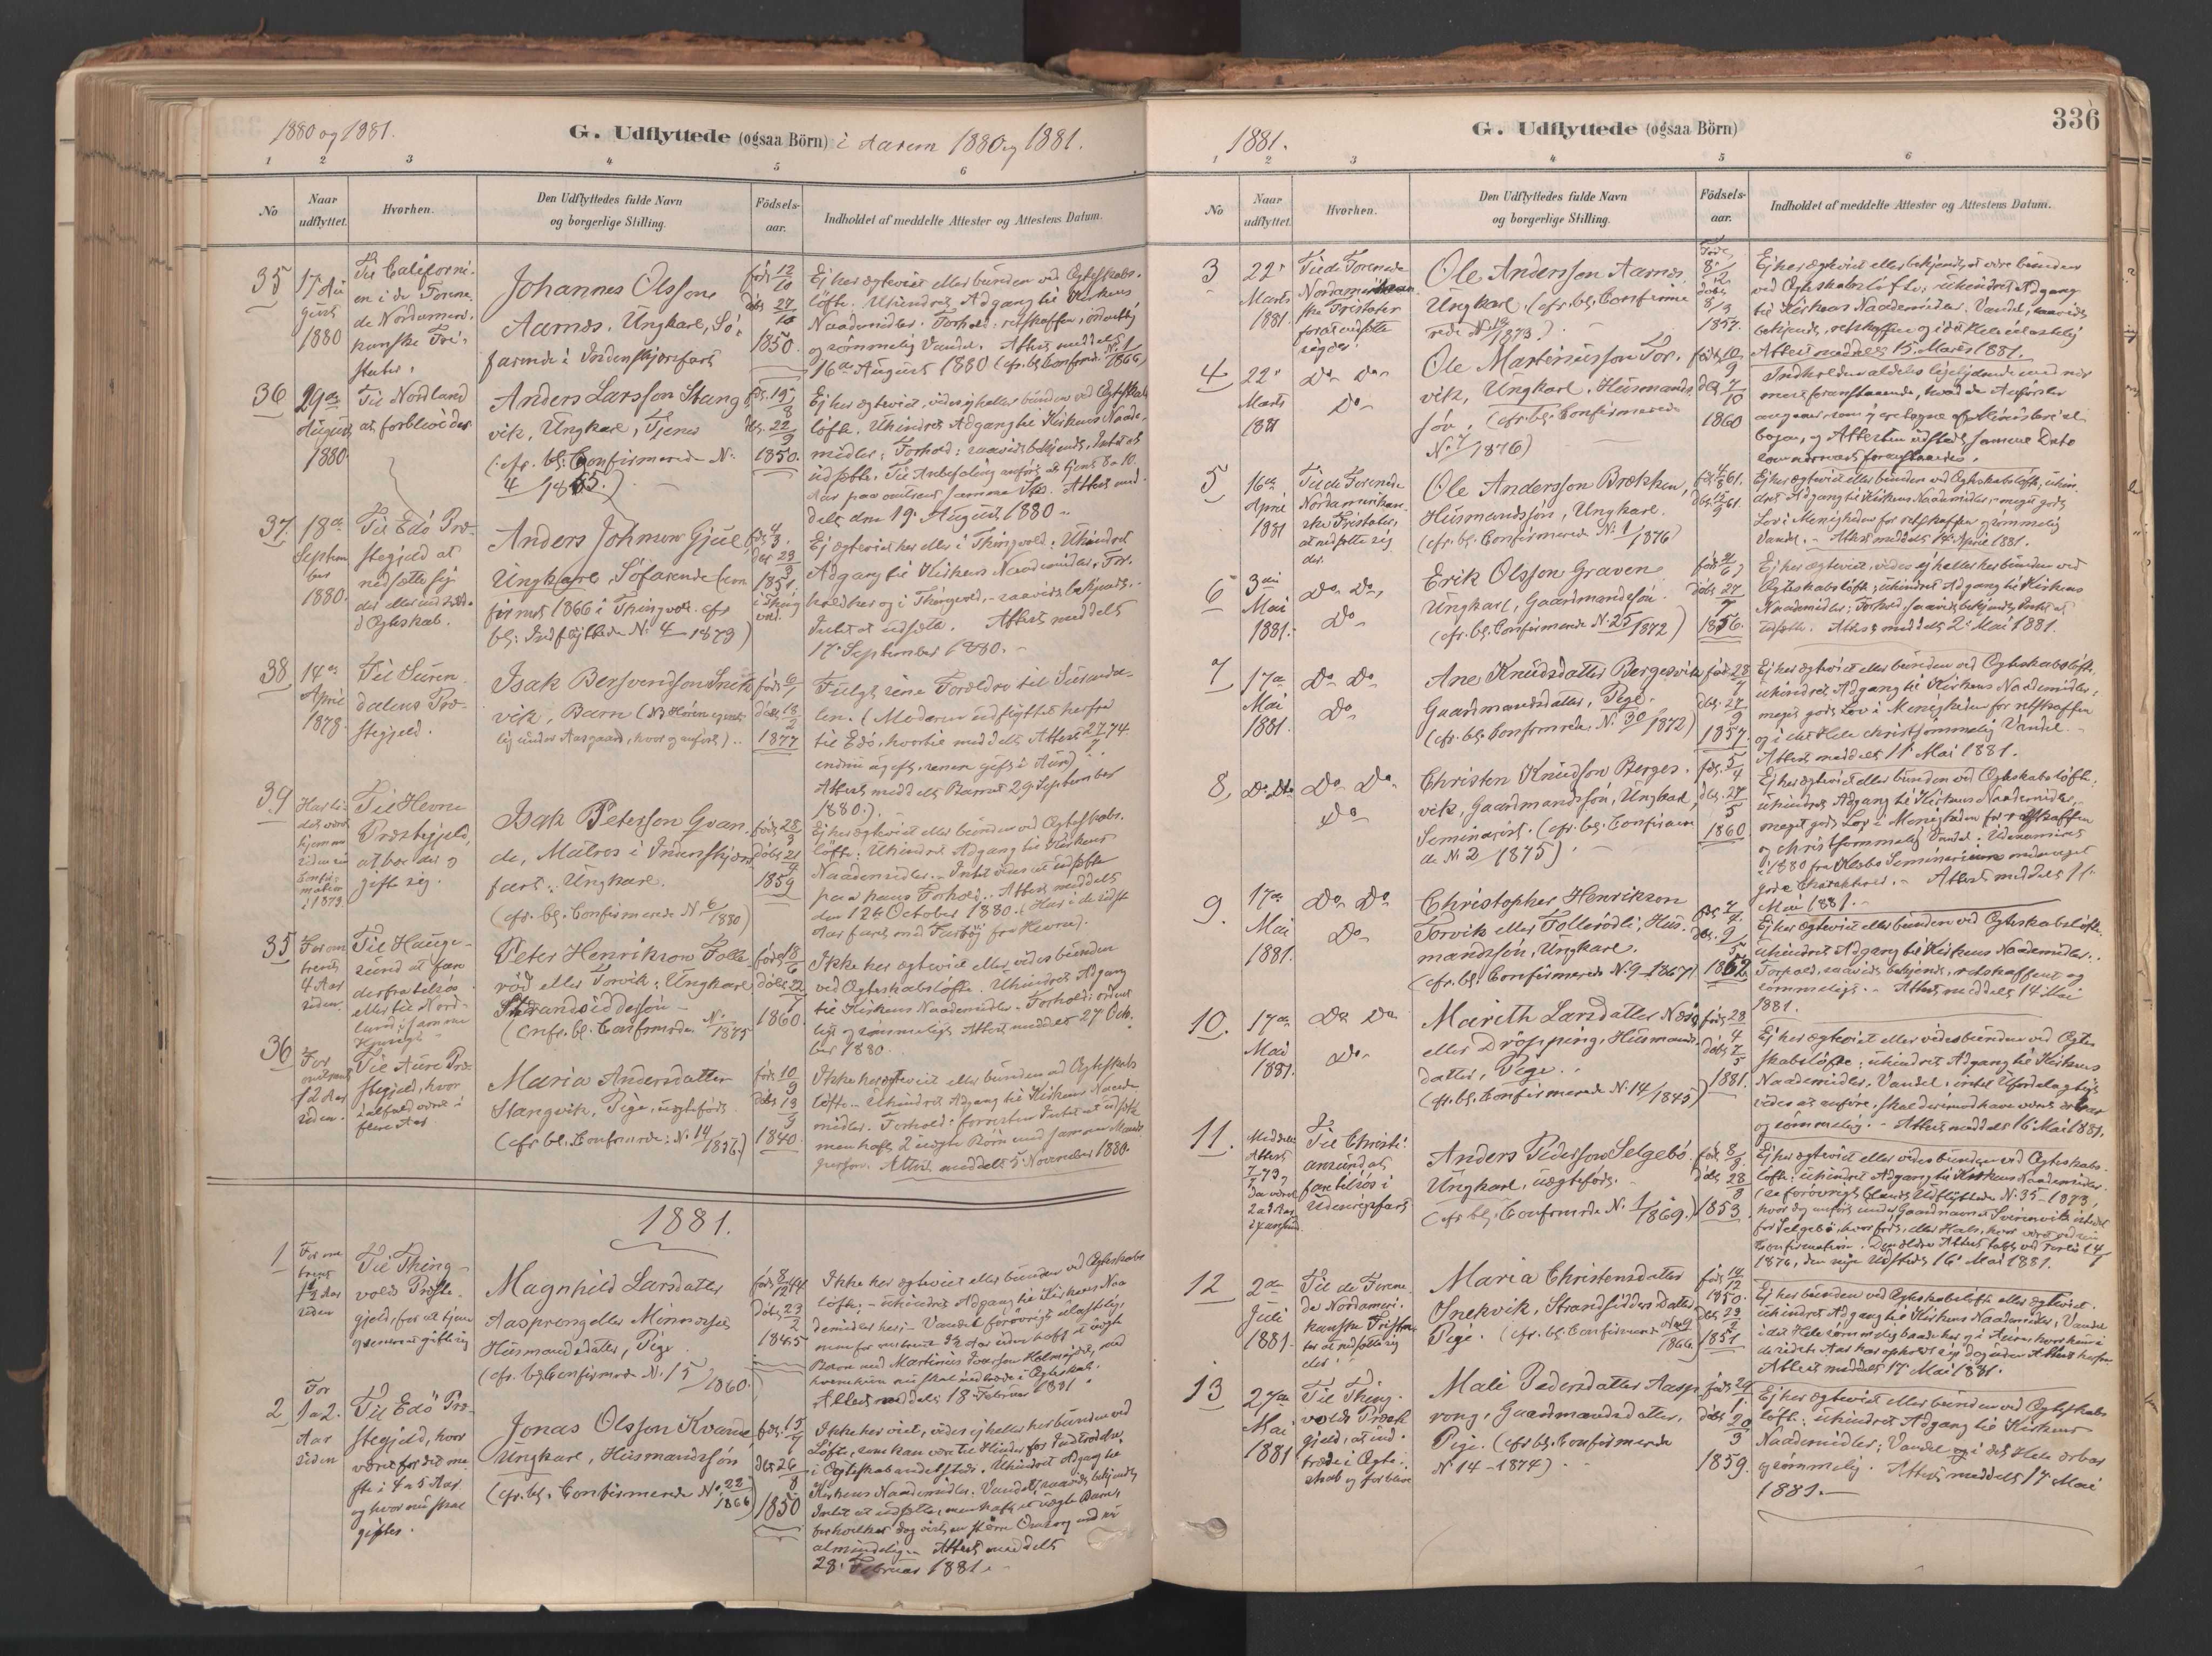 1880 og 1881.
G. Udflyttede (ogsaa Börn) i Aarene 1880 og 1881.
1 2 3 4 5 6
No
Naar udflyttet.
Hvorhen.
Den Udflyttedes fulde Navn og borgerlige Stilling.
Födsels-aar.
Indholdet af meddelte Attester og Attestens Datum.
35
17de August 1880
Til Californi-
en i de Forene-
de Nordameri-
kanske Fri-
stater.
Johannes Olsson
Aarnes, Ungkarl, Sö-
farende i Indenskjærsfart
föd 12/10
döbt 27/10
1850.
Ej her ægteviet eller bunden ved Ægteskabs-
löfte. Uhindret Adgang til Kirkens
Naademidler. Forhold: retskaffen, ordentlig
og sömmelig Vandel. Attest meddelt
16de August 1880 (cfr. bl. Confirmerede N. 1/1866)
36
29de August 1880
Til Nordland
at forblive der
Anders Larsson Stang
vik, Ungkarl, Tjener
(cfr. bl. Confirmerede N.
4 / 1865.)
föd. 19/8
döb. 22/9
1850.
Ej her ægteviet, vides ej heller bunden ved Ægteskabs
löfte. Uhindret Adgang til Kirkens Naade-
midler; Forhold: saavidt bekjendt, Intet at
udsætte. Til Anbefaling anföres at tjent 8 a 10
Aar paa samme Sted. Attest med-
delt den 19. August 1880.
37.
18de September 1880.
Til Edö Præ-
stegjeld at
nedsætte sig
der eller indtræde
i Ægteskab.
Anders Johnson Gjul
Ungkarl, Söfarende (con
firmert 1866 i Thingvold. cfr
bl. Indflyttede N. 4 - 1879)
1851.
i Thing
vold.
Ej ægteviet her eller i Thingvold. Uhindret
Adgang til Kirkens Naademidler, For-
hold her og i Thingvold, saavidt bekjendt,
Intet at udsætte. Attest meddelt
17. September 1880.
38
14de April 1878.
Til Suren-
dalens Præ-
stegjeld.
Isak Bersvendson Snik
vik, Barn
lig under Aasgaard, hvor og anfört).
föd 6/1
döbt 18/2
1877
Fulgt sine Forældre til Surenda-
len. (Moderen udflyttet herfra
til Edö, hvortil meddelt Attest
endnu ugift, senere gift i Aure)
Attest meddelt Barnet 29 September
1880.)
39
Til Hevne
Præstegjeld,
at boe der og
gifte sig.
Isak Peterson Qvan
de, Matros i Indenskjærs
fart. Ungkarl.
(cfr. bl. Confirmerede N. 6/1880)
föd 28/3
döbt 21/4
1859
Ej her ægteviet eller bunden ved Ægteskabs-
löfte: Uhindret Adgang til Kirkens
Naademidler. Intet vides at udsætte
paa hans Forhold. Attest meddelt
den 12te October 1880. (Har i de sidste
Aar faret med Fartöj fra Hevne).
35
For om
trent
4 Aar
siden.
Til Hauge-
sund at fare
derfra tilsøs
eller til Nord-
land, i samme
Peter Henrikson Folle
röd eller Torvik, Ungkarl
Strandsiddersön
(cfr. bl. Confirmerede N. /1875
föd 18/6
döbt 22/7
1860.
Ikke her ægteviet eller vides bunden
ved Ægteskabslöfte. Uhindret Adgang
til Kirkens Naademidler. Forhold: ordent
ligt og sömmeligt. Attest meddelt 27 Octo-
ber 1880.
36
For
omtrent
12 Aar
siden.
Til Aure Præ-
stegjeld, hvor
ialfald været i
flere Aar
Maria Andersdatter
Stangvik, Pige, uægteföd.
(cfr. bl. Confirmerede N. 14/1856.)
föd 10/9
döbt 13/9
1840.
Ikke her ægteviet eller bunden ved Ægteskabs
löfte. Uhindret Adgang til Kirkens Naade
midler. Forhold: forresten Intet at udsætte
men havt 2 uægte Börn med samme Mands
person. Attest meddelt 5 November 1880.
1881.
1
For om
trent
12 Aar
siden
Til Thing-
volds Præste-
gjeld, for at tjene
og senere gifte sig
Magnhild Larsdatter
Aasprong eller
Husmandsdatter, Pige.
(cfr. bl. Confirmerede N. 15 / 1860.
föd 8/12 44
döbt 23/2
1845
Ikke her ægteviet eller bunden ved Ægteskabs
löfte; - uhindret Adgang til Kirkens Naa
demidler her; - Vandel forövrigt ulastelig,
men for omtrent 12 Aar siden havt et uægte
Barn med Martinus Iversson Holmejdet, med
hvem hun nu skal indtræde i Ægteskab.
Attest meddelt 18 Februar 1881.
2
For
1 a 2.
Aar
siden
Til Edö Præ-
stegjeld, hvor
været for det me-
ste i 4 a 5 Aar
og hvor nu skal
giftes.
Jonas Olsson Kvande
Ungkarl, Husmandssön
(cfr. bl. Confirmerede N. 22/1866)
föd. 15/7
döbt 26/8
1850
Ikke her viet, vides ej heller her bunden ved
Löfte, som kan være til Hinder for Indtrædelse
i Ægteskab andetsteds. Uhindret Adgang til
Kirkens Naademidler. Vandel, saavidt bekjendt
Intet at udsætte, men havt et uægte Barn,
for hvilket dog vist en större Omsorg end
almindelig. Attest meddelt
28. Februar 1881.
1881.
G. Udflyttede (ogsaa Börn)
336
1 2 3 4 5 6
No
Naar udflyttet.
Hvorhen.
Den Udflyttedes fulde Navn og borgerlige Stilling.
Födsels-aar.
Indholdet af meddelte Attester og Attestens Datum.
3
22de Marts 1881.
Til de Forenede
Nordamerikan
ske Fristater
for at nedsætte
sig der.
Ole Andersson Aarnes
Ungkarl (cfr. bl. Confirme
rede N. 19/1873.)
Föd 8/2
döbt 8/3
1857.
Ej her ægteviet eller bekjendt at være bunden
ved Ægteskabslöfte; uhindret Adgang
til Kirkens Naademidler. Vandel, saavidt
bekjendt, retskaffen og i det Hele ulastelig
Attest meddelt 15. Marts 1881.
4
22de Marts 1881
Do Do
Do
Ole Martinusson Tor-
vik, Ungkarl, Husmands
sön, (cfr. bl. Confirmerede
N. 7/1876)
föd 10/9
döb 7/10
1860
Indholdet aldeles ligelydende med nær
mest foranstaaende, hvad der Anföres
bogen, og Attesten udstedt samme Dato
som nærmest foranstaaende.
5
16de April 1881
Til de Forenede
Nordamerikan
ske Fristater,
at nedsætte sig
der.
Ole Andersson Brækken,
Husmandssön, Ungkarl.
(cfr. bl. Confirmerede N. 1/1876)
Ej her ægteviet eller bunden ved Ægteskabslöfte; uhin-
dret Adgang til Kirkens Naademidler; - meget godt
Lov i Menigheden for retskaffen og sömmelig
Vandel. - Attest meddelt 14 April 1881.
6
3die Mai 1881.
Do Do,
Do
Erik Olsson Graven
Ungkarl, Gaardmandssön.
(cfr. bl. Confirmerede N. 25/1872)
döbt 27/7
1856.
Ej her ægteviet, vides ej heller her bunden ved
Ægteskabslöfte; uhindret Adgang til Kirkens
Naademidler; Forhold, saavidt bekjendt, Intet at
udsætte. Attest meddelt 2. Mai 1881.
7
17de Mai 1881.
Do Do
Do
Ane Knudsdatter Bergesvik
Gaardmandsdatter, Pige.
(cfr. bl. Confirmerede N. 30/1872)
föd 28/7
döb. 27/9
1857
Ej her ægteviet eller bunden ved Ægteskabslöfte,
uhindret Adgang til Kirkens Naademidler;
meget godt Lov i Menigheden for retskaffen
og i det Hele christsömmelig Vandel.
Attest meddelt 11. Mai 1881.
8
Do Dto
Do Do
Do
Christen Knudson Berges-
vik, Gaardmandssön, Ungkarl,
Seminarist. (cfr. bl. Confirmere
de N. 2 / 1875)
föd. 5/4
döb. 27/5
1860
Ej her ægteviet eller bunden ved Ægteskabslöfte:
uhindret Adgang til Kirkens Naademidler,
meget godt Lov i Menigheden for retskaffen
og christsömmelig Vandel. Udexamineret
i 1880 fra Klæbo Seminarium med meget
god Charakter. - Attest meddelt 11.
Mai 1881.
9.
17de Mai 1881.
Do Do
Do
Christopher Henrikson
Torvik eller Follerödli, Hus-
mandssön, Ungkarl.
(cfr. bl. Confirmerede N. 9 - 1867)
1852
Ej her ægteviet eller bunden ved Ægteskabslöfte.
uhindret Adgang til Kirkens Naademidler.
Forhold, saavidt bekjendt, retskaffent og
sömmeligt. - Attest meddelt 14 Mai
1881.
10.
17de Mai 1881.
Do Do
Do
Marith Larsdatter Næs
eller Dröpping, Husmands-
datter, Pige.
(cfr. bl. Confirmerede N. 14/1845)
föd 28/4
döbt 7/5
1881.
Ej her ægteviet eller vides bunden ved Ægte
skabslöfte; uhindret Adgang til Kirkens
Naademidler, Vandel: intet Ufordelagtigt
vides at anföre, skal derimod have været ærbar
og sömmelig. - Attest meddelt 16 Mai 1881.
11.
Meddelt
Attest
Til Christi-
ansund at
fare tilsös i
Udenrigsfart
Anders Pedersson Selgebö
Ungkarl, uægteföd.
(cfr. bl. Confirmerede N. 1/1869.)
föd. 8/8.
döbt 28/8
1853.
Ej her ægteviet eller vides bunden ved Ægteskabs-
löfte: uhindret Adgang til Kirkens Naademidler.
(se forövrigt blandt Udflyttede N. 35 - 1873,
hvor dog anfört under Gaardnavnet Sverrevik istedet
for Selgebö, hvor föd, eller Hals, hvor været ved sin
Confirmation. Den ældre Attest tabt ved Forlis
1876, den nye udstedt 16. Mai 1881.
12
2den Juli 1881.
Til de Forene-
de Nordameri-
kanske Frista-
ter at nedsætte sig
der.
Maria Christensdatter
Snekvik, Strandsiddersdatter
Pige. (cfr. bl. Confirmerede N. 9/1866)
föd 14/12
1850.
döb 23/2
1851
Ej her bunden ved Ægteskabslöfte eller ægteviet.
uhindret Adgang til Kirkens Naademidler, Vandel
i det Hele sömmelig baade her og i Aure, hvor hun i
de sidste Aar har opholdt sig dog uden Attest herfra.
Attest meddelt 17 Mai 1881.
13
27de Mai 1881
Til Thing-
volds Præste
gjeld, at ind-
træde i Ægte-
skab og forblive
Mali Pedersdatter Aasp
rong, Gaardmandsdatter,
Pige. (cfr. bl. Confirmerede
N. 14 - 1874)
döbt 20/3
1859.
Ej her ægteviet eller bunden ved Ægteskabs
löfte: uhindret Adgang til Kirkens
Naademidler; Vandel og i det Hele ærbar
og sömmelig. Attest meddelt 17 Mai
1881.